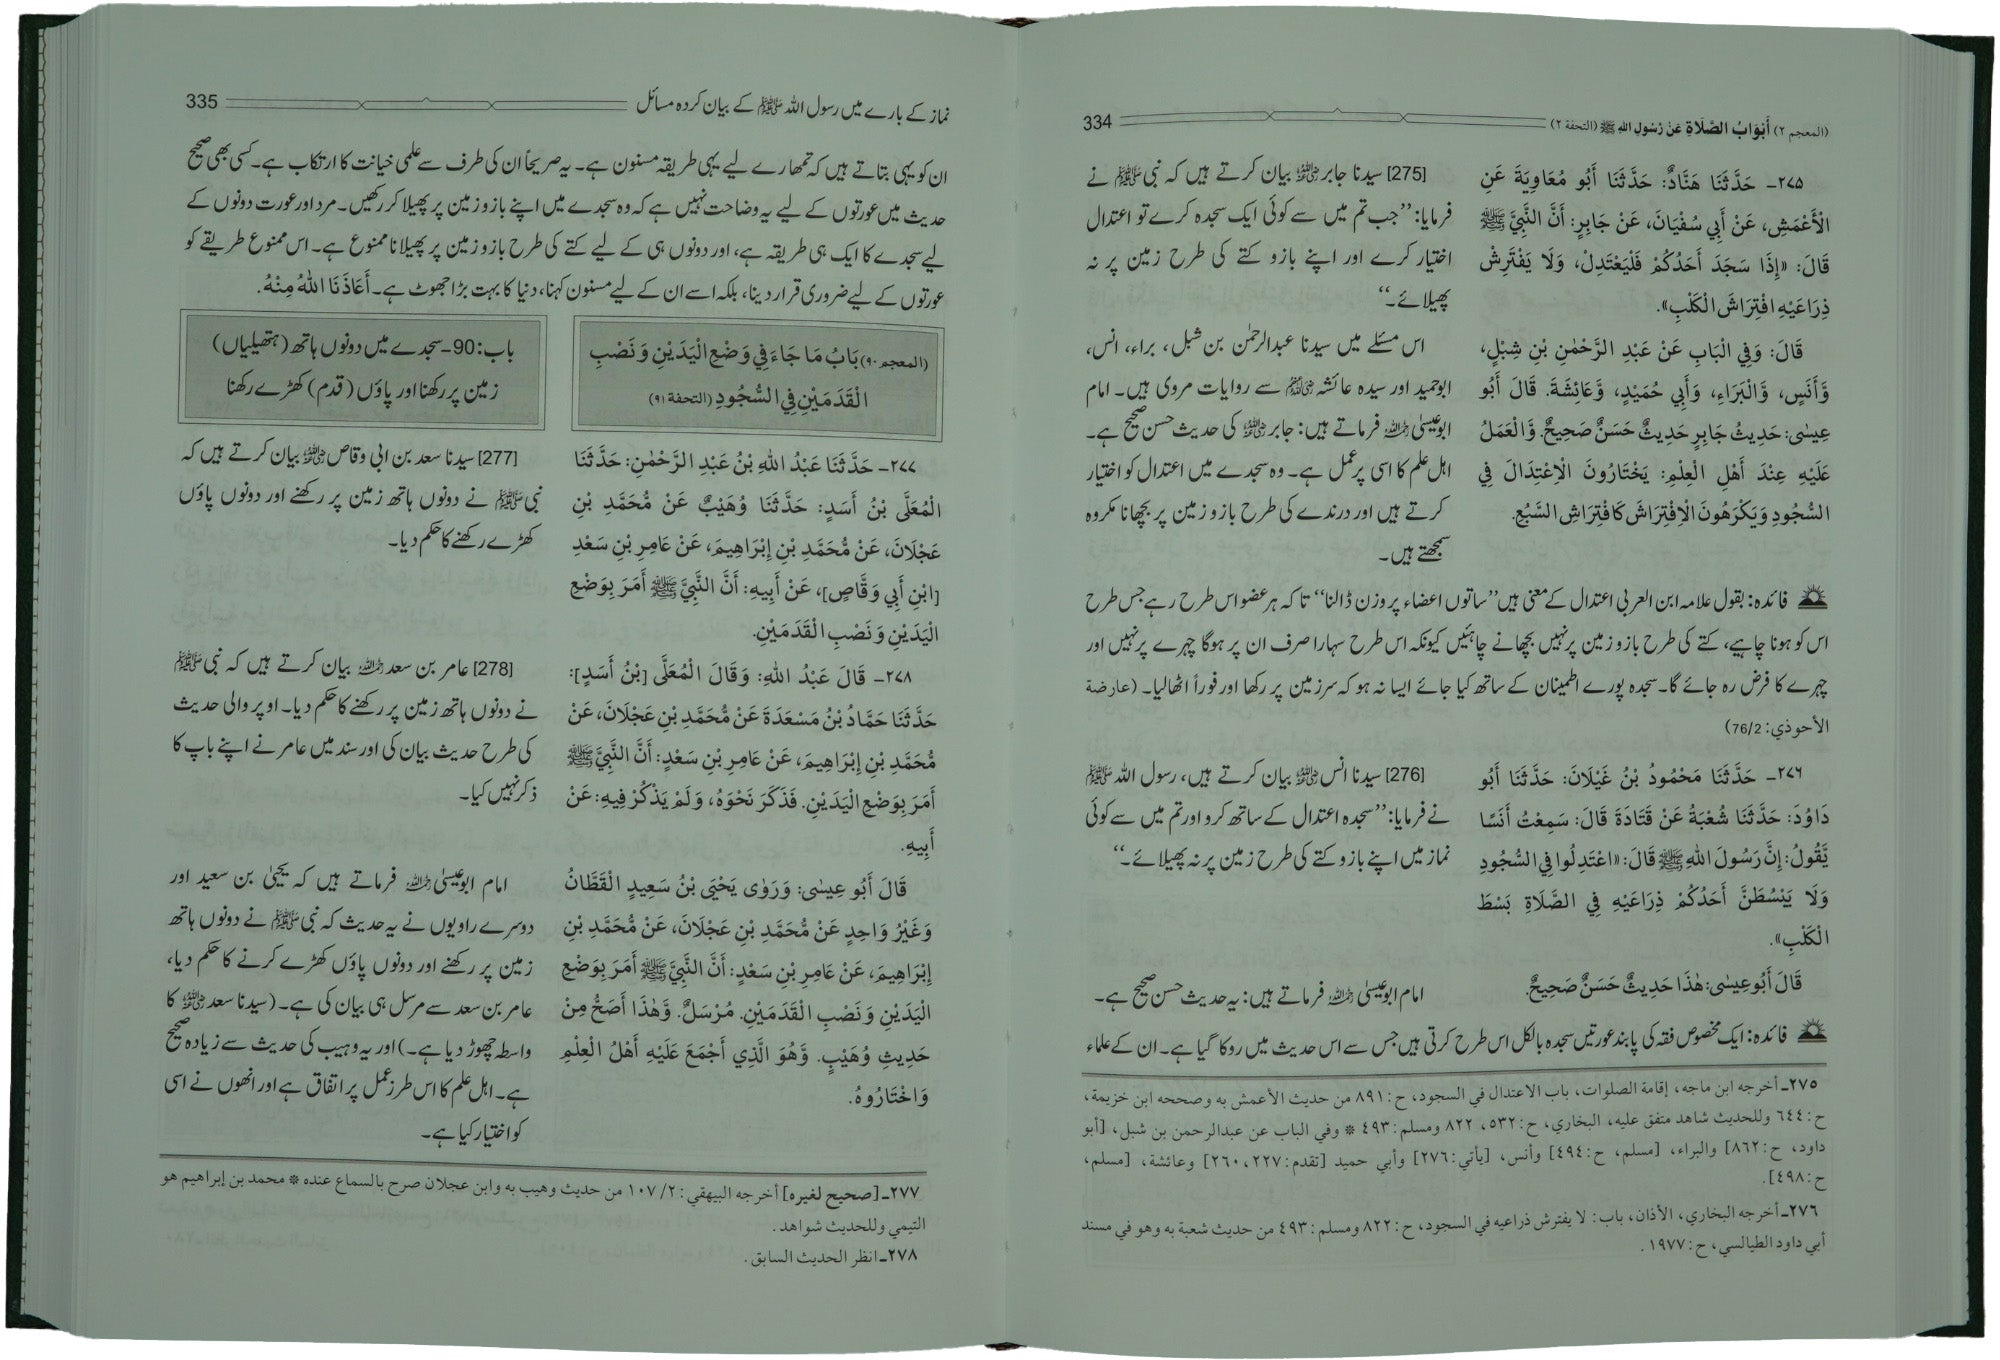 (المعجم ٢) أَبْوَابُ الصَّلَاةِ عَنْ رَسُولِ اللهِ ﷺ (التحفة ٢) 334
٢٧٥- حَدَّثَنَا هَنَّادٌ: حَدَّثَنَا أَبُو مُعَاوِيَةَ عَنِ
الْأَعْمَشِ، عَنْ أَبِي سُفْيَانَ، عَنْ جَابِرٍ: أَنَّ النَّبِيَّ ﷺ
قَالَ: «إِذَا سَجَدَ أَحَدُكُمْ فَلْيَعْتَدِلْ، وَلَا يَفْتَرِشْ
ذِرَاعَيْهِ افْتِرَاشَ الْكَلْبِ».
قَالَ: وَفِي الْبَابِ عَنْ عَبْدِ الرَّحْمٰنِ بْنِ شِبْلٍ،
وَّأَنَسٍ، وَّالْبَرَاءِ، وَأَبِي حُمَيْدٍ، وَّعَائِشَةَ. قَالَ أَبُو
عِيسٰى: حَدِيثُ جَابِرٍ حَدِيثٌ حَسَنٌ صَحِيحٌ. وَّالْعَمَلُ
عَلَيْهِ عِنْدَ أَهْلِ الْعِلْمِ: يَخْتَارُونَ الْاِعْتِدَالَ فِي
السُّجُودِ وَيَكْرَهُونَ الْاِفْتِرَاشَ كَافْتِرَاشِ السَّبُعِ.
[275] سیدنا جابر ؓ بیان کرتے ہیں کہ نبی ﷺ نے
فرمایا: ’’جب تم میں سے کوئی ایک سجدہ کرے تو اعتدال
اختیار کرے اور اپنے بازو کتے کی طرح زمین پر نہ
پھیلائے۔‘‘
اس مسئلے میں سیدنا عبدالرحمٰن بن شبل، براء، انس،
ابوحمید اور سیدہ عائشہ ؓ سے روایات مروی ہیں۔ امام
ابوعیسیٰ ؒ فرماتے ہیں: جابر ؓ کی حدیث حسن صحیح ہے۔
اہل علم کا اسی پر عمل ہے۔ وہ سجدے میں اعتدال کو اختیار
کرتے ہیں اور درندے کی طرح بازو زمین پر بچھانا مکروہ
سمجھتے ہیں۔
فائدہ: بقول علامہ ابن العربی اعتدال کے معنی ہیں ’’ساتوں اعضاء پر وزن ڈالنا‘‘ تاکہ ہر عضو اس طرح رہے جس طرح
اس کو ہونا چاہیے، کتے کی طرح بازو زمین پر نہیں بچھانے چاہئیں کیونکہ اس طرح سہارا صرف ان پر ہوگا چہرے پر نہیں اور
چہرے کا فرض رہ جائے گا۔ سجدہ پورے اطمینان کے ساتھ کیا جائے ایسا نہ ہو کہ سر زمین پر رکھا اور فوراً اٹھالیا۔ (عارضة
الأحوذي: 76/2)
٢٧٦- حَدَّثَنَا مَحْمُودُ بْنُ غَيْلَانَ: حَدَّثَنَا أَبُو
دَاوُدَ: حَدَّثَنَا شُعْبَةُ عَنْ قَتَادَةَ قَالَ: سَمِعْتُ أَنَسًا
يَّقُولُ: إِنَّ رَسُولَ اللهِ ﷺ قَالَ: «اعْتَدِلُوا فِي السُّجُودِ
وَلَا يَبْسُطَنَّ أَحَدُكُمْ ذِرَاعَيْهِ فِي الصَّلَاةِ بَسْطَ
الْكَلْبِ».
قَالَ أَبُو عِيسٰى: هٰذَا حَدِيثٌ حَسَنٌ صَحِيحٌ.
[276] سیدنا انس ؓ بیان کرتے ہیں، رسول اللہ ﷺ
نے فرمایا: ’’سجدہ اعتدال کے ساتھ کرو اور تم میں سے کوئی
نماز میں اپنے بازو کتے کی طرح زمین پر نہ پھیلائے۔‘‘
امام ابوعیسیٰ ؒ فرماتے ہیں: یہ حدیث حسن صحیح ہے۔
فائدہ: ایک مخصوص فقہ کی پابند عورتیں سجدہ بالکل اس طرح کرتی ہیں جس سے اس حدیث میں روکا گیا ہے۔ ان کے علماء
٢٧٥ـ أخرجه ابن ماجه، إقامة الصلوات، باب الاعتدال في السجود، ح: ٨٩١ من حديث الأعمش به وصححه ابن خزيمة،
ح: ٦٤٤ وللحديث شاهد متفق عليه، البخاري، ح: ٥٣٢، ٨٢٢ ومسلم: ٤٩٣ * وفي الباب عن عبدالرحمن بن شبل، [أبو
داود، ح: ٨٦٢] والبراء، [مسلم، ح: ٤٩٤] وأنس، [يأتي: ٢٧٦] وأبي حميد [تقدم: ٢٢٧، ٢٦٠] وعائشة، [مسلم،
ح: ٤٩٨].
٢٧٦ـ أخرجه البخاري، الأذان، باب: لا يفترش ذراعيه في السجود، ح: ٨٢٢ ومسلم: ٤٩٣ من حديث شعبة به وهو في مسند
أبي داود الطيالسي، ح: ١٩٧٧.
نماز کے بارے میں رسول اللہ ﷺ کے بیان کردہ مسائل 335
ان کو یہی بتاتے ہیں کہ تمھارے لیے یہی طریقہ مسنون ہے۔ یہ صریحاً ان کی طرف سے علمی خیانت کا ارتکاب ہے۔ کسی بھی صحیح
حدیث میں عورتوں کے لیے یہ وضاحت نہیں ہے کہ وہ سجدے میں اپنے بازو زمین پر پھیلا کر رکھیں۔ مرد اور عورت دونوں کے
لیے سجدے کا ایک ہی طریقہ ہے، اور دونوں ہی کے لیے کتے کی طرح بازو زمین پر پھیلانا ممنوع ہے۔ اس ممنوع طریقے کو
عورتوں کے لیے ضروری قرار دینا، بلکہ اسے ان کے لیے مسنون کہنا، دنیا کا بہت بڑا جھوٹ ہے۔ أَعَاذَنَا اللهُ مِنْهُ.
(المعجم ٩٠) بَابُ مَا جَاءَ فِي وَضْعِ الْيَدَيْنِ وَنَصْبِ
الْقَدَمَيْنِ فِي السُّجُودِ (التحفة ٩١)
باب: 90- سجدے میں دونوں ہاتھ (ہتھیلیاں)
زمین پر رکھنا اور پاؤں (قدم) کھڑے رکھنا
٢٧٧- حَدَّثَنَا عَبْدُ اللهِ بْنُ عَبْدِ الرَّحْمٰنِ: حَدَّثَنَا
الْمُعَلَّى بْنُ أَسَدٍ: حَدَّثَنَا وُهَيْبٌ عَنْ مُّحَمَّدِ بْنِ
عَجْلَانَ، عَنْ مُّحَمَّدِ بْنِ إِبْرَاهِيمَ، عَنْ عَامِرِ بْنِ سَعْدِ
[ابْنِ أَبِي وَقَّاصٍ]، عَنْ أَبِيهِ: أَنَّ النَّبِيَّ ﷺ أَمَرَ بِوَضْعِ
الْيَدَيْنِ وَنَصْبِ الْقَدَمَيْنِ.
[277] سیدنا سعد بن ابی وقاص ؓ بیان کرتے ہیں کہ
نبی ﷺ نے دونوں ہاتھ زمین پر رکھنے اور دونوں پاؤں
کھڑے رکھنے کا حکم دیا۔
٢٧٨- قَالَ عَبْدُ اللهِ: وَقَالَ الْمُعَلَّى [بْنُ أَسَدٍ]:
حَدَّثَنَا حَمَّادُ بْنُ مَسْعَدَةَ عَنْ مُّحَمَّدِ بْنِ عَجْلَانَ، عَنْ
مُّحَمَّدِ بْنِ إِبْرَاهِيمَ، عَنْ عَامِرِ بْنِ سَعْدٍ: أَنَّ النَّبِيَّ ﷺ
أَمَرَ بِوَضْعِ الْيَدَيْنِ. فَذَكَرَ نَحْوَهُ، وَلَمْ يَذْكُرْ فِيهِ: عَنْ
أَبِيهِ.
[278] عامر بن سعد ؒ بیان کرتے ہیں کہ نبی ﷺ
نے دونوں ہاتھ زمین پر رکھنے کا حکم دیا۔ اوپر والی حدیث
کی طرح حدیث بیان کی اور سند میں عامر نے اپنے باپ کا
ذکر نہیں کیا۔
قَالَ أَبُو عِيسٰى: وَرَوٰى يَحْيَى بْنُ سَعِيدٍ الْقَطَّانُ
وَغَيْرُ وَاحِدٍ عَنْ مُّحَمَّدِ بْنِ عَجْلَانَ، عَنْ مُّحَمَّدِ بْنِ
إِبْرَاهِيمَ، عَنْ عَامِرِ بْنِ سَعْدٍ: أَنَّ النَّبِيَّ ﷺ أَمَرَ بِوَضْعِ
الْيَدَيْنِ وَنَصْبِ الْقَدَمَيْنِ. مُرْسَلٌ. وَّهٰذَا أَصَحُّ مِنْ
حَدِيثِ وُهَيْبٍ. وَّهُوَ الَّذِي أَجْمَعَ عَلَيْهِ أَهْلُ الْعِلْمِ
وَاخْتَارُوهُ.
امام ابوعیسیٰ ؒ فرماتے ہیں کہ یحییٰ بن سعید اور
دوسرے راویوں نے یہ حدیث کہ نبی ﷺ نے دونوں ہاتھ
زمین پر رکھنے اور دونوں پاؤں کھڑے کرنے کا حکم دیا،
عامر بن سعد سے مرسل ہی بیان کی ہے۔ (سیدنا سعد ؓ کا
واسطہ چھوڑ دیا ہے۔) اور یہ وہیب کی حدیث سے زیادہ صحیح
ہے۔ اہل علم کا اس طرز عمل پر اتفاق ہے اور انھوں نے اسی
کو اختیار کیا ہے۔
٢٧٧ـ [صحيح لغيره] أخرجه البيهقي: ١٠٧/٢ من حديث وهيب به وابن عجلان صرح بالسماع عنده * محمد بن إبراهيم هو
التيمي وللحديث شواهد.
٢٧٨ـ انظر الحديث السابق.